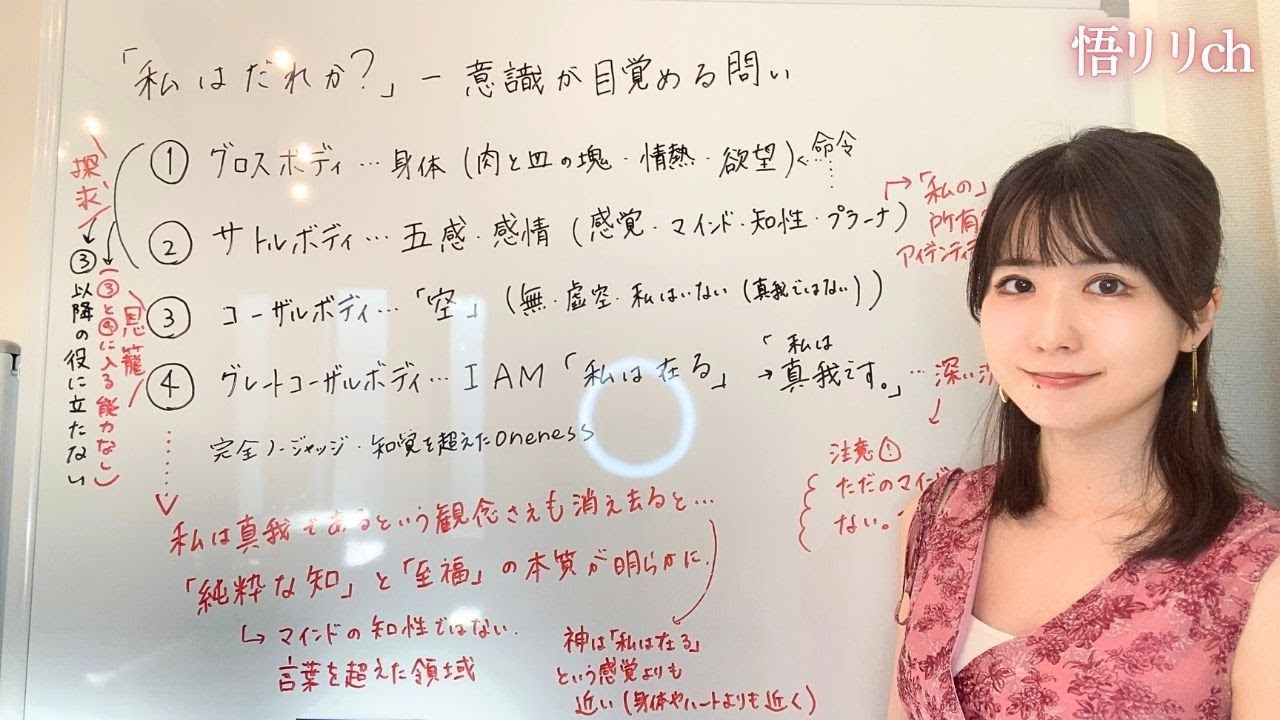 悟リリch
「私はだれか?」ー意識が目覚める問い
① グロスボディ…身体(肉と血の塊・情熱・欲望)←命令
② サトルボディ…五感・感情(感覚・マインド・知性・プラーナ)
「私の」
所有
アイデンティ
③ コーザルボディ…「空」(無・虚空・私はいない(真我ではない))
④ グレートコーザルボディ…I AM「私は在る」→「私は真我です。」…深い
完全ノージャッジ・知覚を超えたoneness
探求
③以降の役に立たない
(③と④に入る能力なし)
恩寵
注意①
ただのマインド
ない。
私は真我であるという観念さえも消え去ると…
「純粋な知」と「至福」の本質が明らかに.
↳マインドの知性ではない.
言葉を超えた領域
神は「私は在る」
という感覚よりも
近い(身体やハートよりも近く)